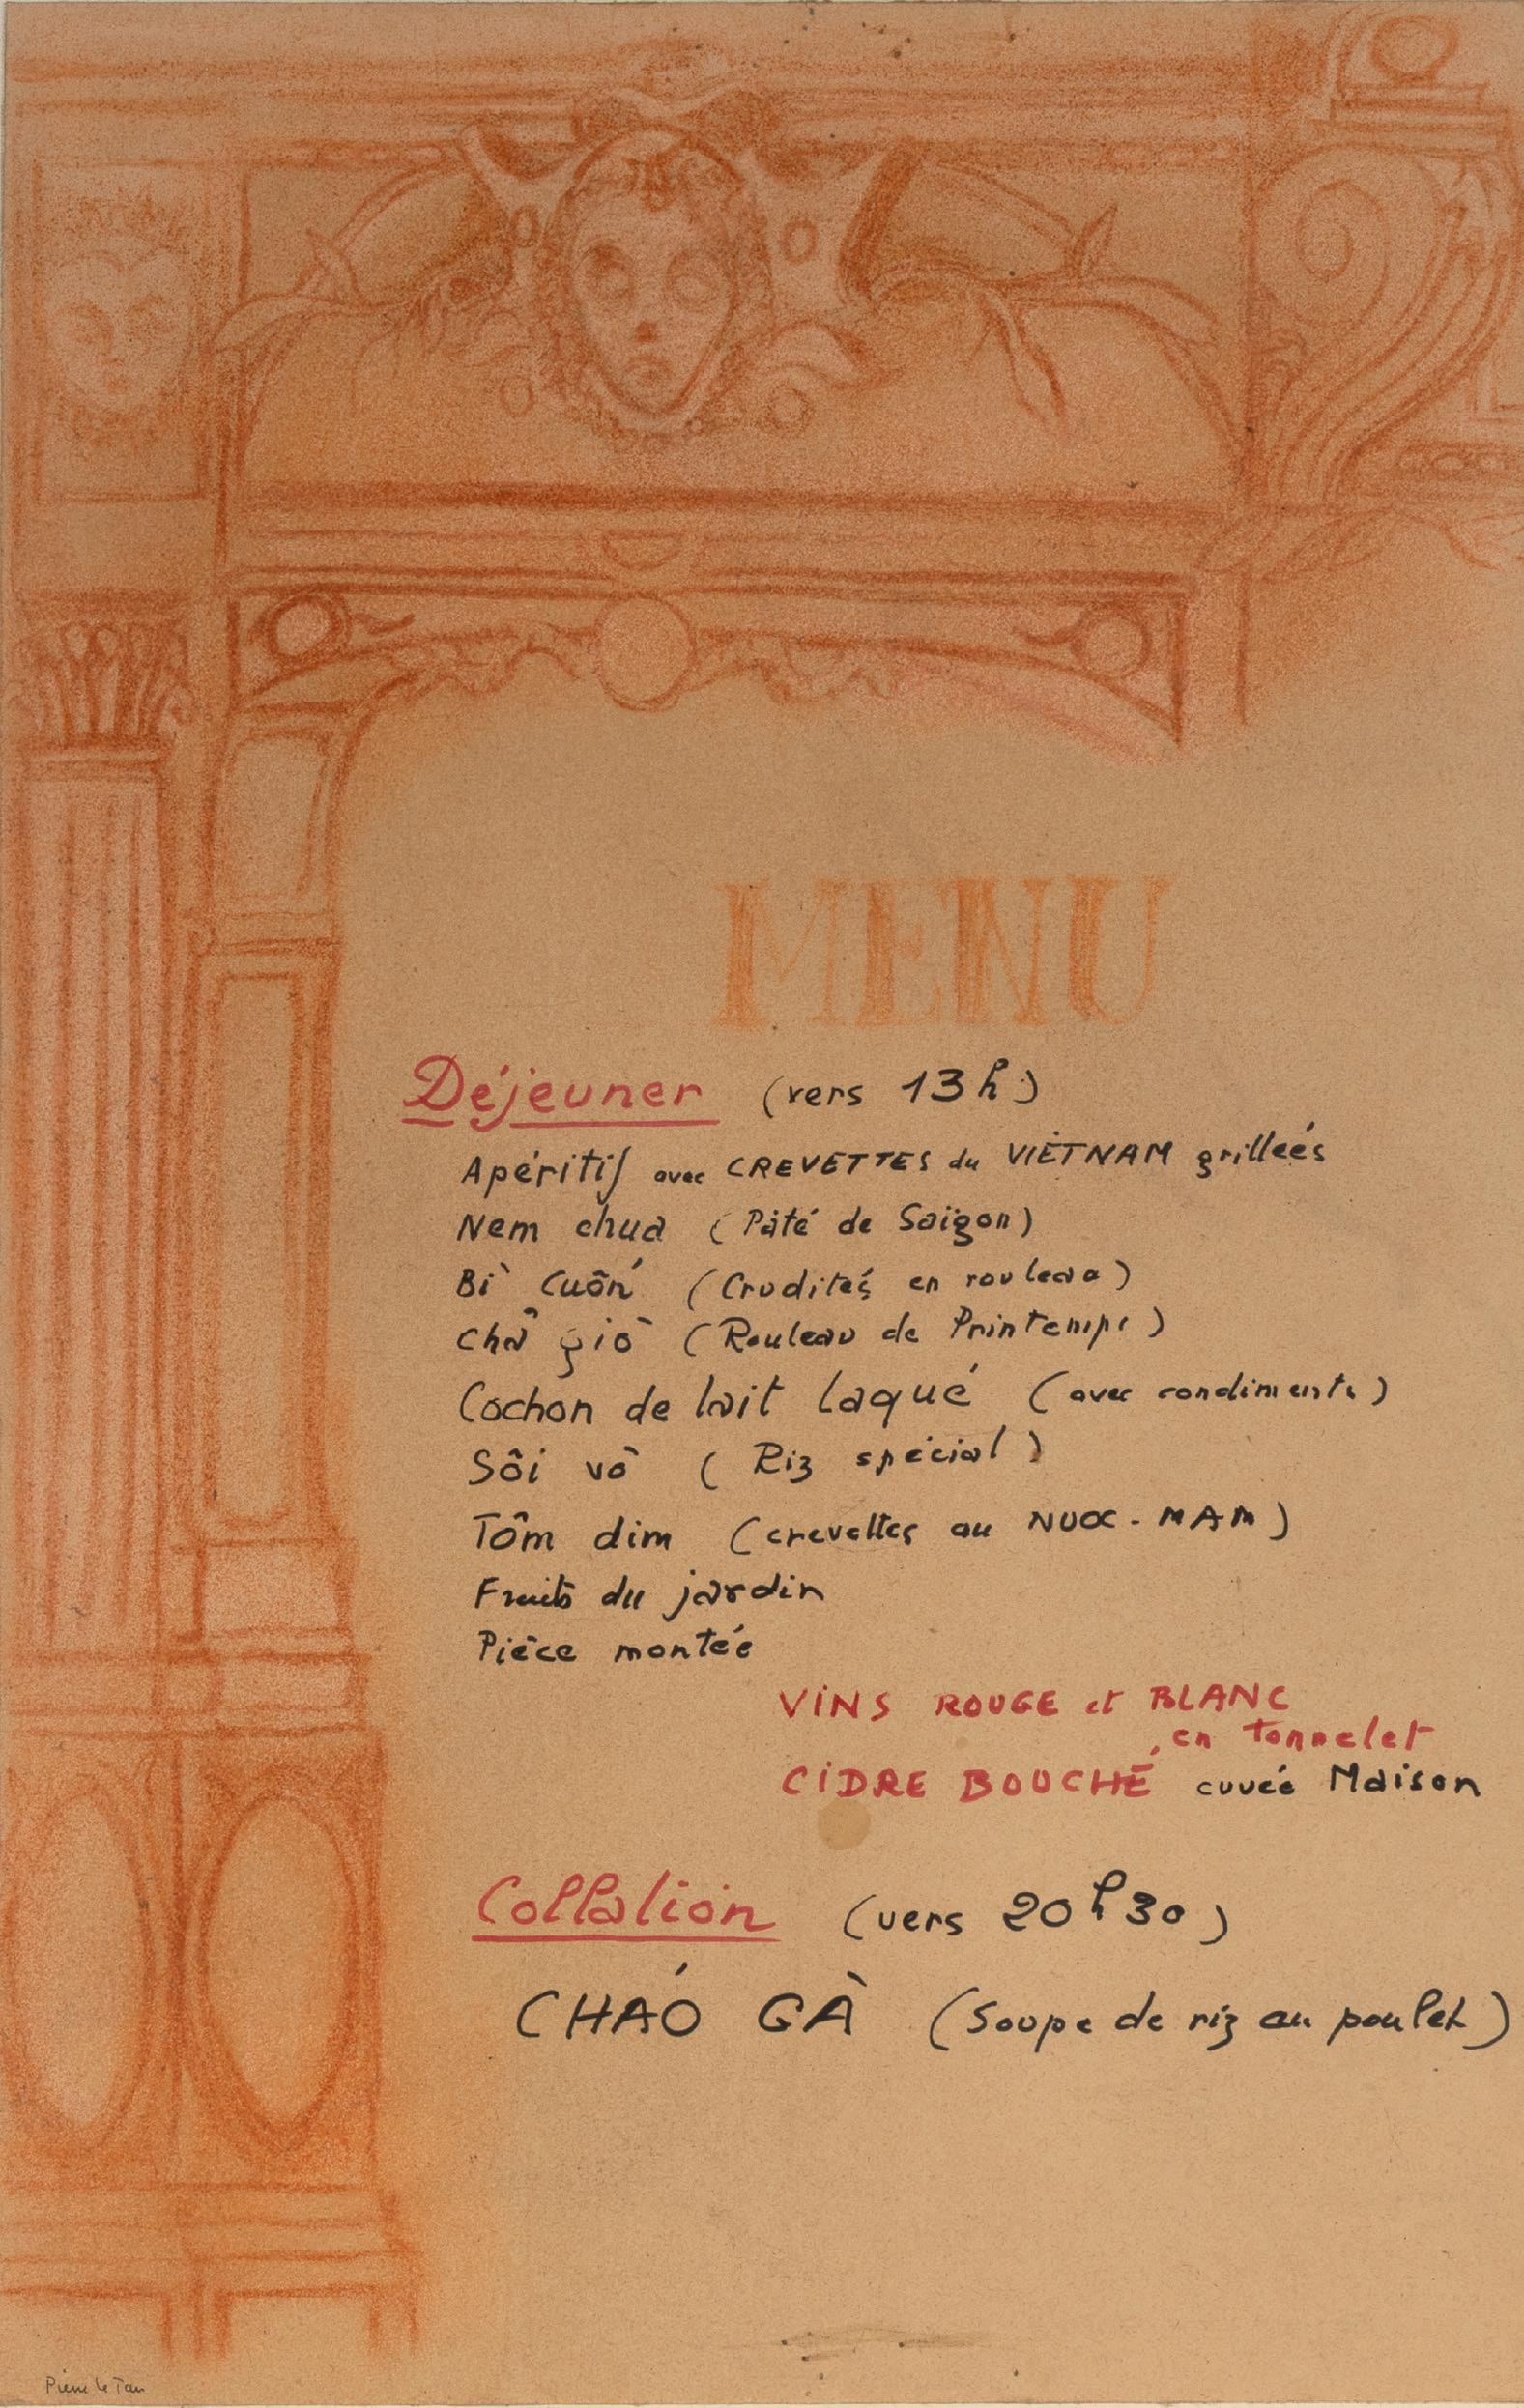 MENU
Déjeuner (vers 13h)
Apéritif avec CREVETTES du VIÊTNAM grilleés
Nem chua (Pâté de Saïgon)
Bì Cuốn (Crudités en rouleau)
Chả giò (Rouleau de Printemps)
Cochon de lait laqué (avec condiments)
Sôi vò (Riz spécial)
Tôm dim (crevettes au NUOC-MAM)
Fruits du jardin
Pièce montée
VINS ROUGE et BLANC
en tonnelet
CIDRE BOUCHÉ cuvée Maison
Collation (vers 20h30)
CHAÓ GÀ (Soupe de riz au poulet)
Pierre Le Tan